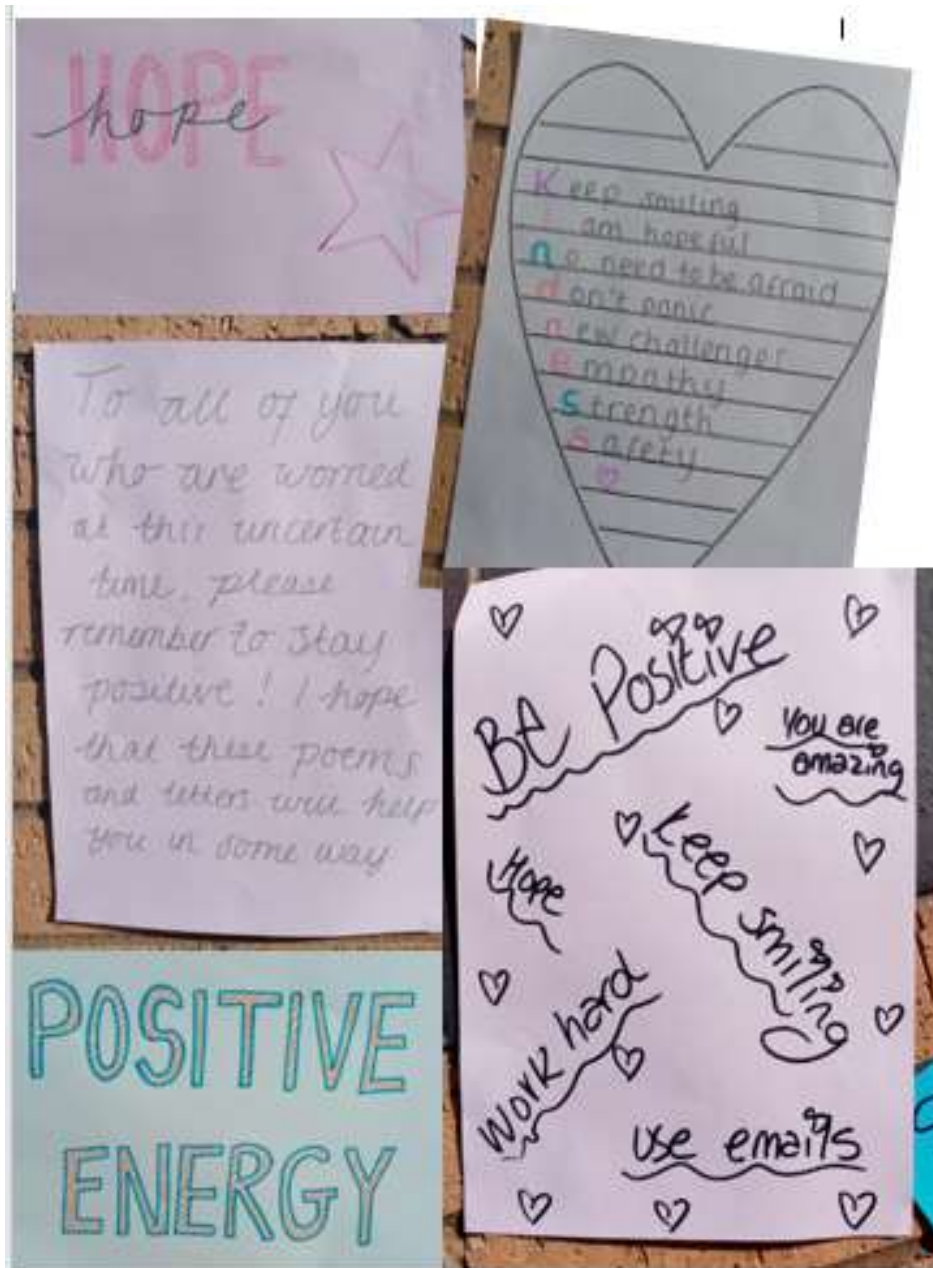 HOPE
hope
Keep smiling
i am hopeful
no need to be afraid
don't panic
new challenges
Empathy
Strength
Safety
To all of you
who are worried
at this uncertain
time, please
remember to stay
positive! I hope
that these poems
and letters will help
you in some way
BE Positive
You are
amazing
Keep smiling
Hope
Work hard
use emails
POSITIVE
ENERGY